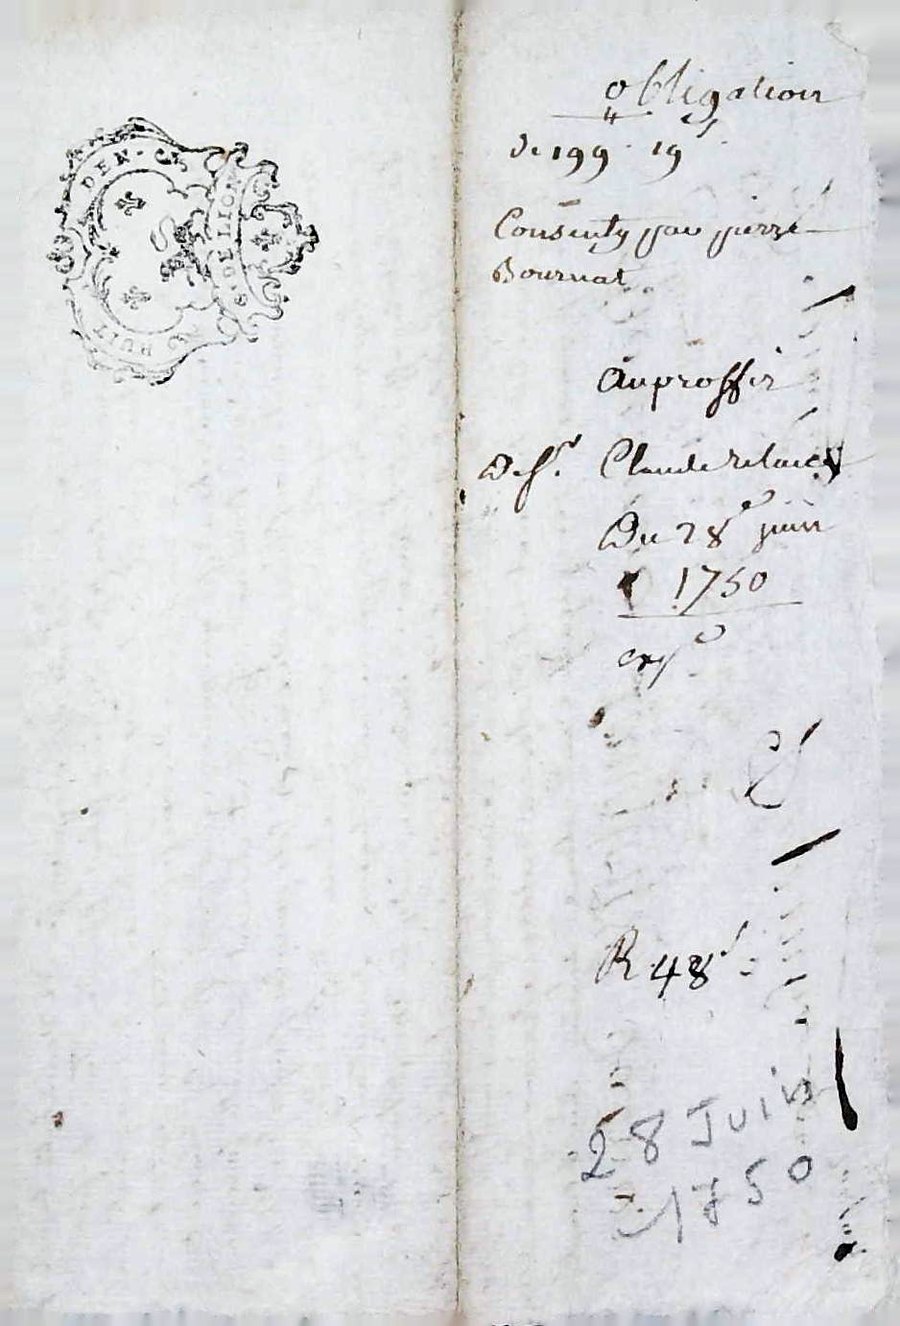 HUIT DEN.
G. DE LION
obligation
de 199 ₶ 19 s
Consenty par pierre
Bournat
Au proffit
De sr. Claude
Du 28e juin
1750
expe
R 48 s
28 Juin
1750